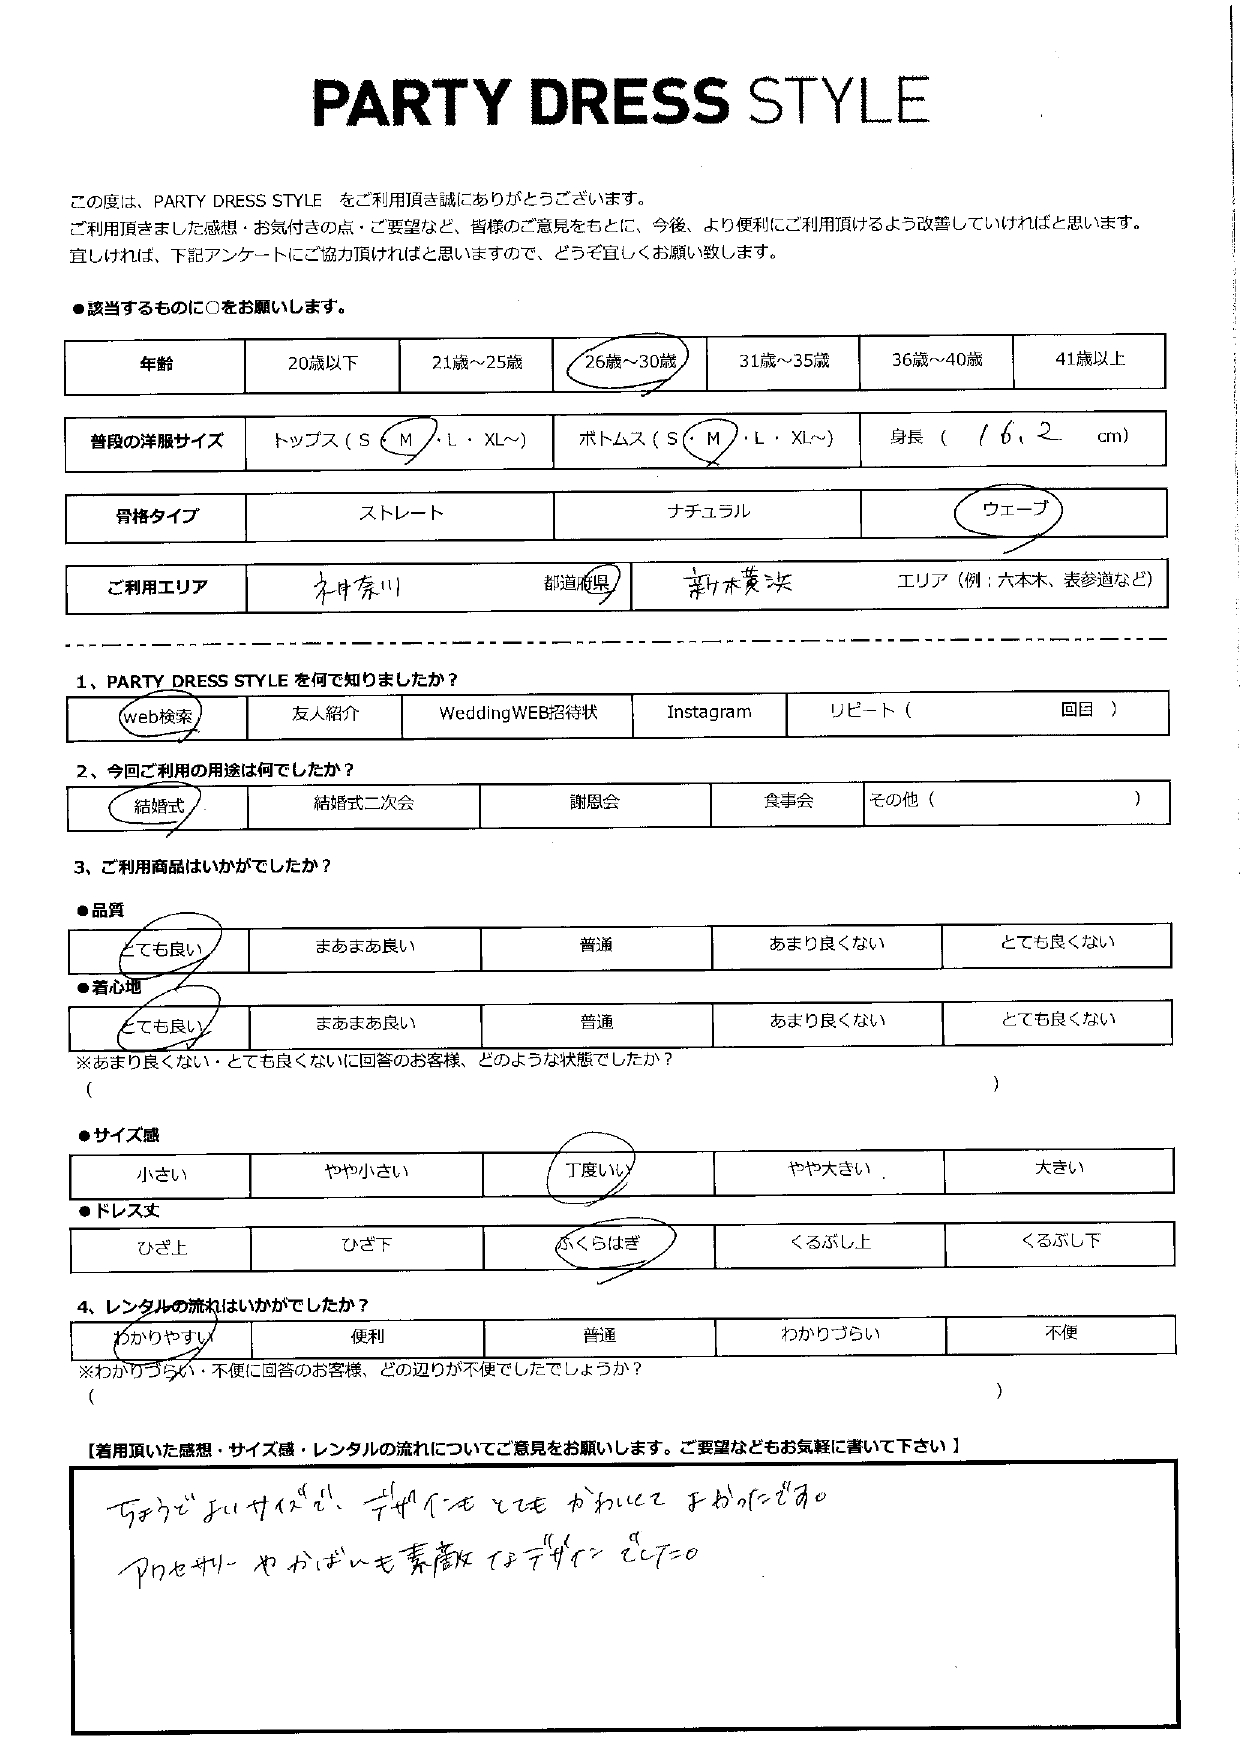 PARTY DRESS STYLE
この度は、PARTY DRESS STYLE をご利用頂き誠にありがとうございます。
ご利用頂きました感想・お気付きの点・ご要望など、皆様のご意見をもとに、今後、より便利にご利用頂けるよう改善していければと思います。
宜しければ、下記アンケートにご協力頂ければと思いますので、どうぞ宜しくお願い致します。
●該当するものに○をお願いします。
年齢 20歳以下 21歳～25歳 26歳～30歳 31歳～35歳 36歳～40歳 41歳以上
普段の洋服サイズ トップス ( S ・ M ・ L ・ XL～) ボトムス ( S ・ M ・ L ・ XL～) 身長 ( 16.2 cm)
骨格タイプ ストレート ナチュラル ウェーブ
ご利用エリア 神奈川 都道府県 新横浜 エリア（例：六本木、表参道など）
1、PARTY DRESS STYLE を何で知りましたか？
web検索 友人紹介 WeddingWEB招待状 Instagram リピート ( 回目 )
2、今回ご利用の用途は何でしたか？
結婚式 結婚式二次会 謝恩会 食事会 その他 ( )
3、ご利用商品はいかがでしたか？
●品質
とても良い まあまあ良い 普通 あまり良くない とても良くない
●着心地
とても良い まあまあ良い 普通 あまり良くない とても良くない
※あまり良くない・とても良くないに回答のお客様、どのような状態でしたか？
( )
●サイズ感
小さい やや小さい 丁度いい やや大きい 大きい
●ドレス丈
ひざ上 ひざ下 ふくらはぎ くるぶし上 くるぶし下
4、レンタルの流れはいかがでしたか？
わかりやすい 便利 普通 わかりづらい 不便
※わかりづらい・不便に回答のお客様、どの辺りが不便でしたでしょうか？
( )
【着用頂いた感想・サイズ感・レンタルの流れについてご意見をお願いします。ご要望などもお気軽に書いて下さい 】
ちょうどよいサイズで、デザインもとてもかわいくてよかったです。
アクセサリーやかばんも素敵なデザインでした。